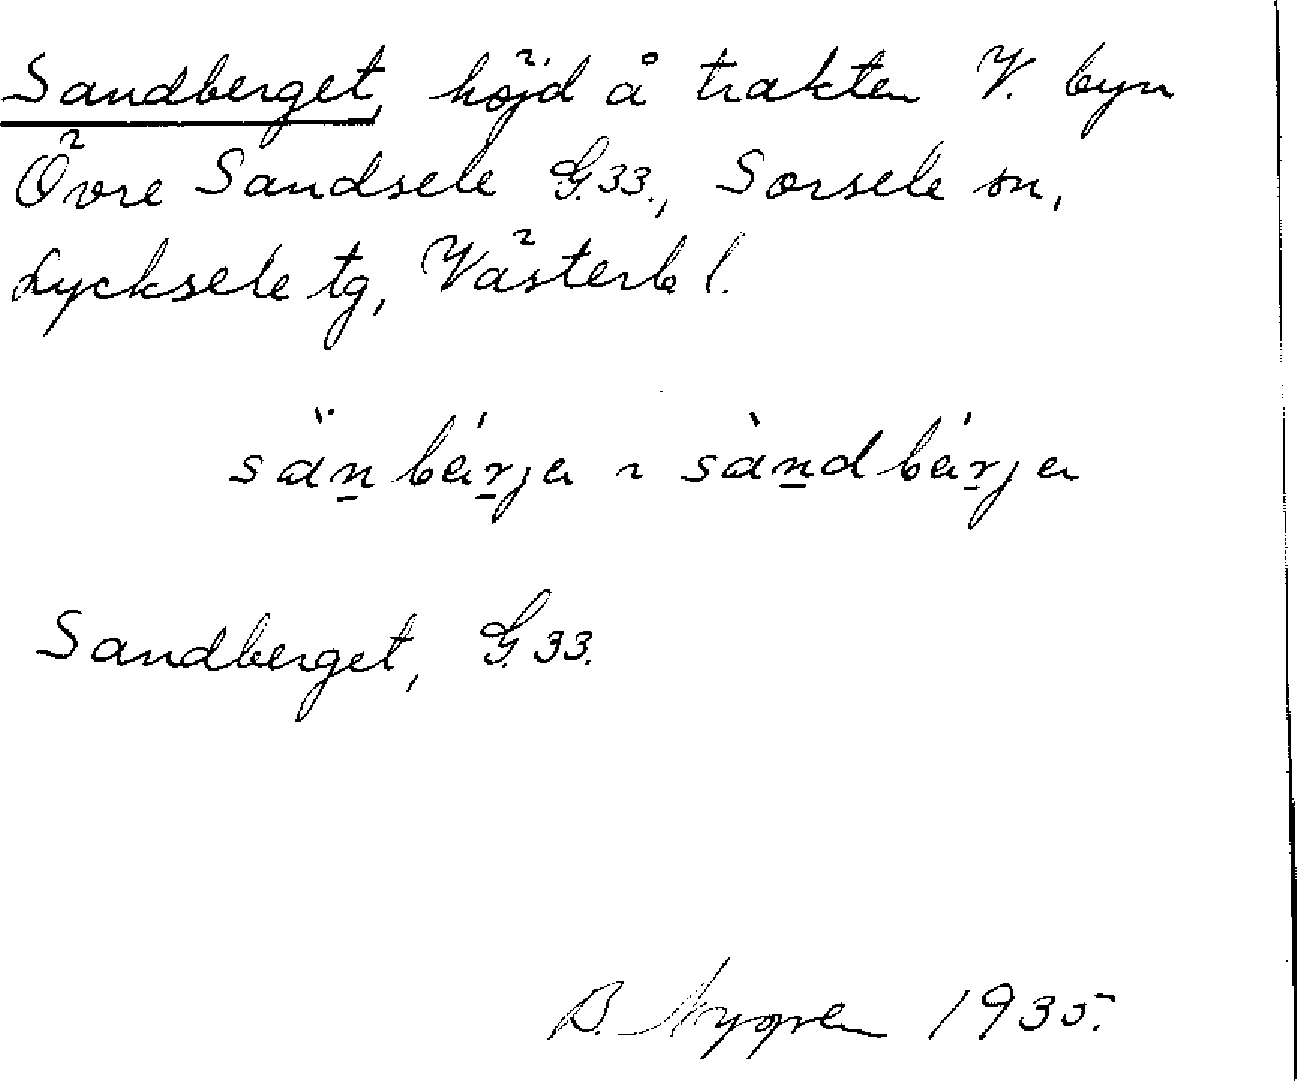 Sandberget, höjd å trakten V. byn
Övre Sandsele G.33., Sorsele sn,
Lycksele tg, Västerb l.
sä̀n̠bár̠ja ~ sàn̠dbár̠ja
Sandberget, G.33.
B. Nygren 1935.